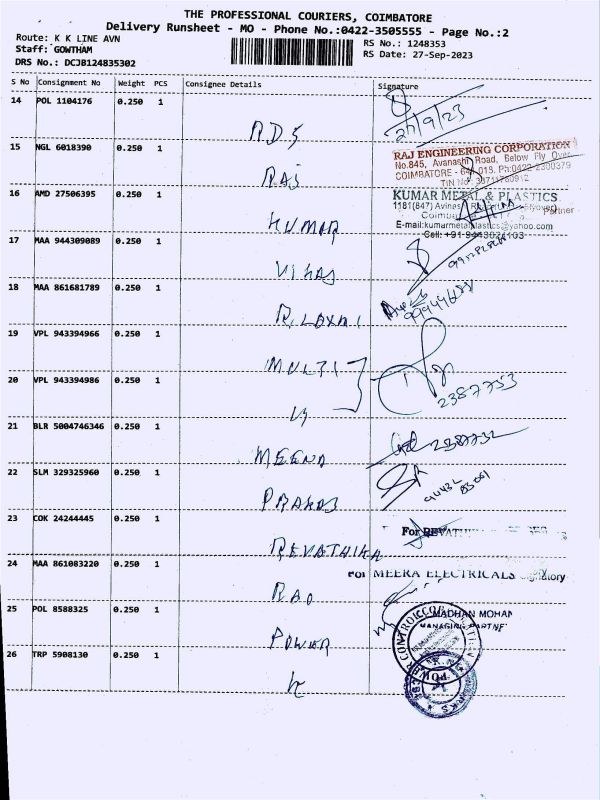 THE PROFESSIONAL COURIERS, COIMBATORE
Delivery Runsheet - MO - Phone No.:0422-3505555 - Page No.:2
Route: K K LINE AVN
RS No.: 1248353
Staff: GOWTHAM
RS Date: 27-Sep-2023
DRS No.: DCJB124835302
S No Consignment No Weight PCS Consignee Details Signature
14 POL 1104176 0.250 1
27/9/23
R.D.S
15 NGL 6018390 0.250 1
RAJ ENGINEERING CORPORATION
No.845, Avanashi Road, Below Fly Over
COIMBATORE
RAJ
16 AMD 27506395 0.250 1
KUMAR METAL & PLASTICS
Partner
E-mail:kumarmetalplastics@yahoo.com
KUMAR
17 MAA 944309089 0.250 1
VIKAS
18 MAA 861681789 0.250 1
R. LAXMI
19 VPL 943394966 0.250 1
MULTI
20 VPL 943394986 0.250 1
2387753
21 BLR 5004746346 0.250 1
MEENA
22 SLM 329325960 0.250 1
PRAKAS
23 COK 24244445 0.250 1
For
REVATHIKA
24 MAA 861083220 0.250 1
For MEERA ELECTRICALS
RAO
25 POL 8588325 0.250 1
MADHAN MOHAN
POWER
26 TRP 5908130 0.250 1